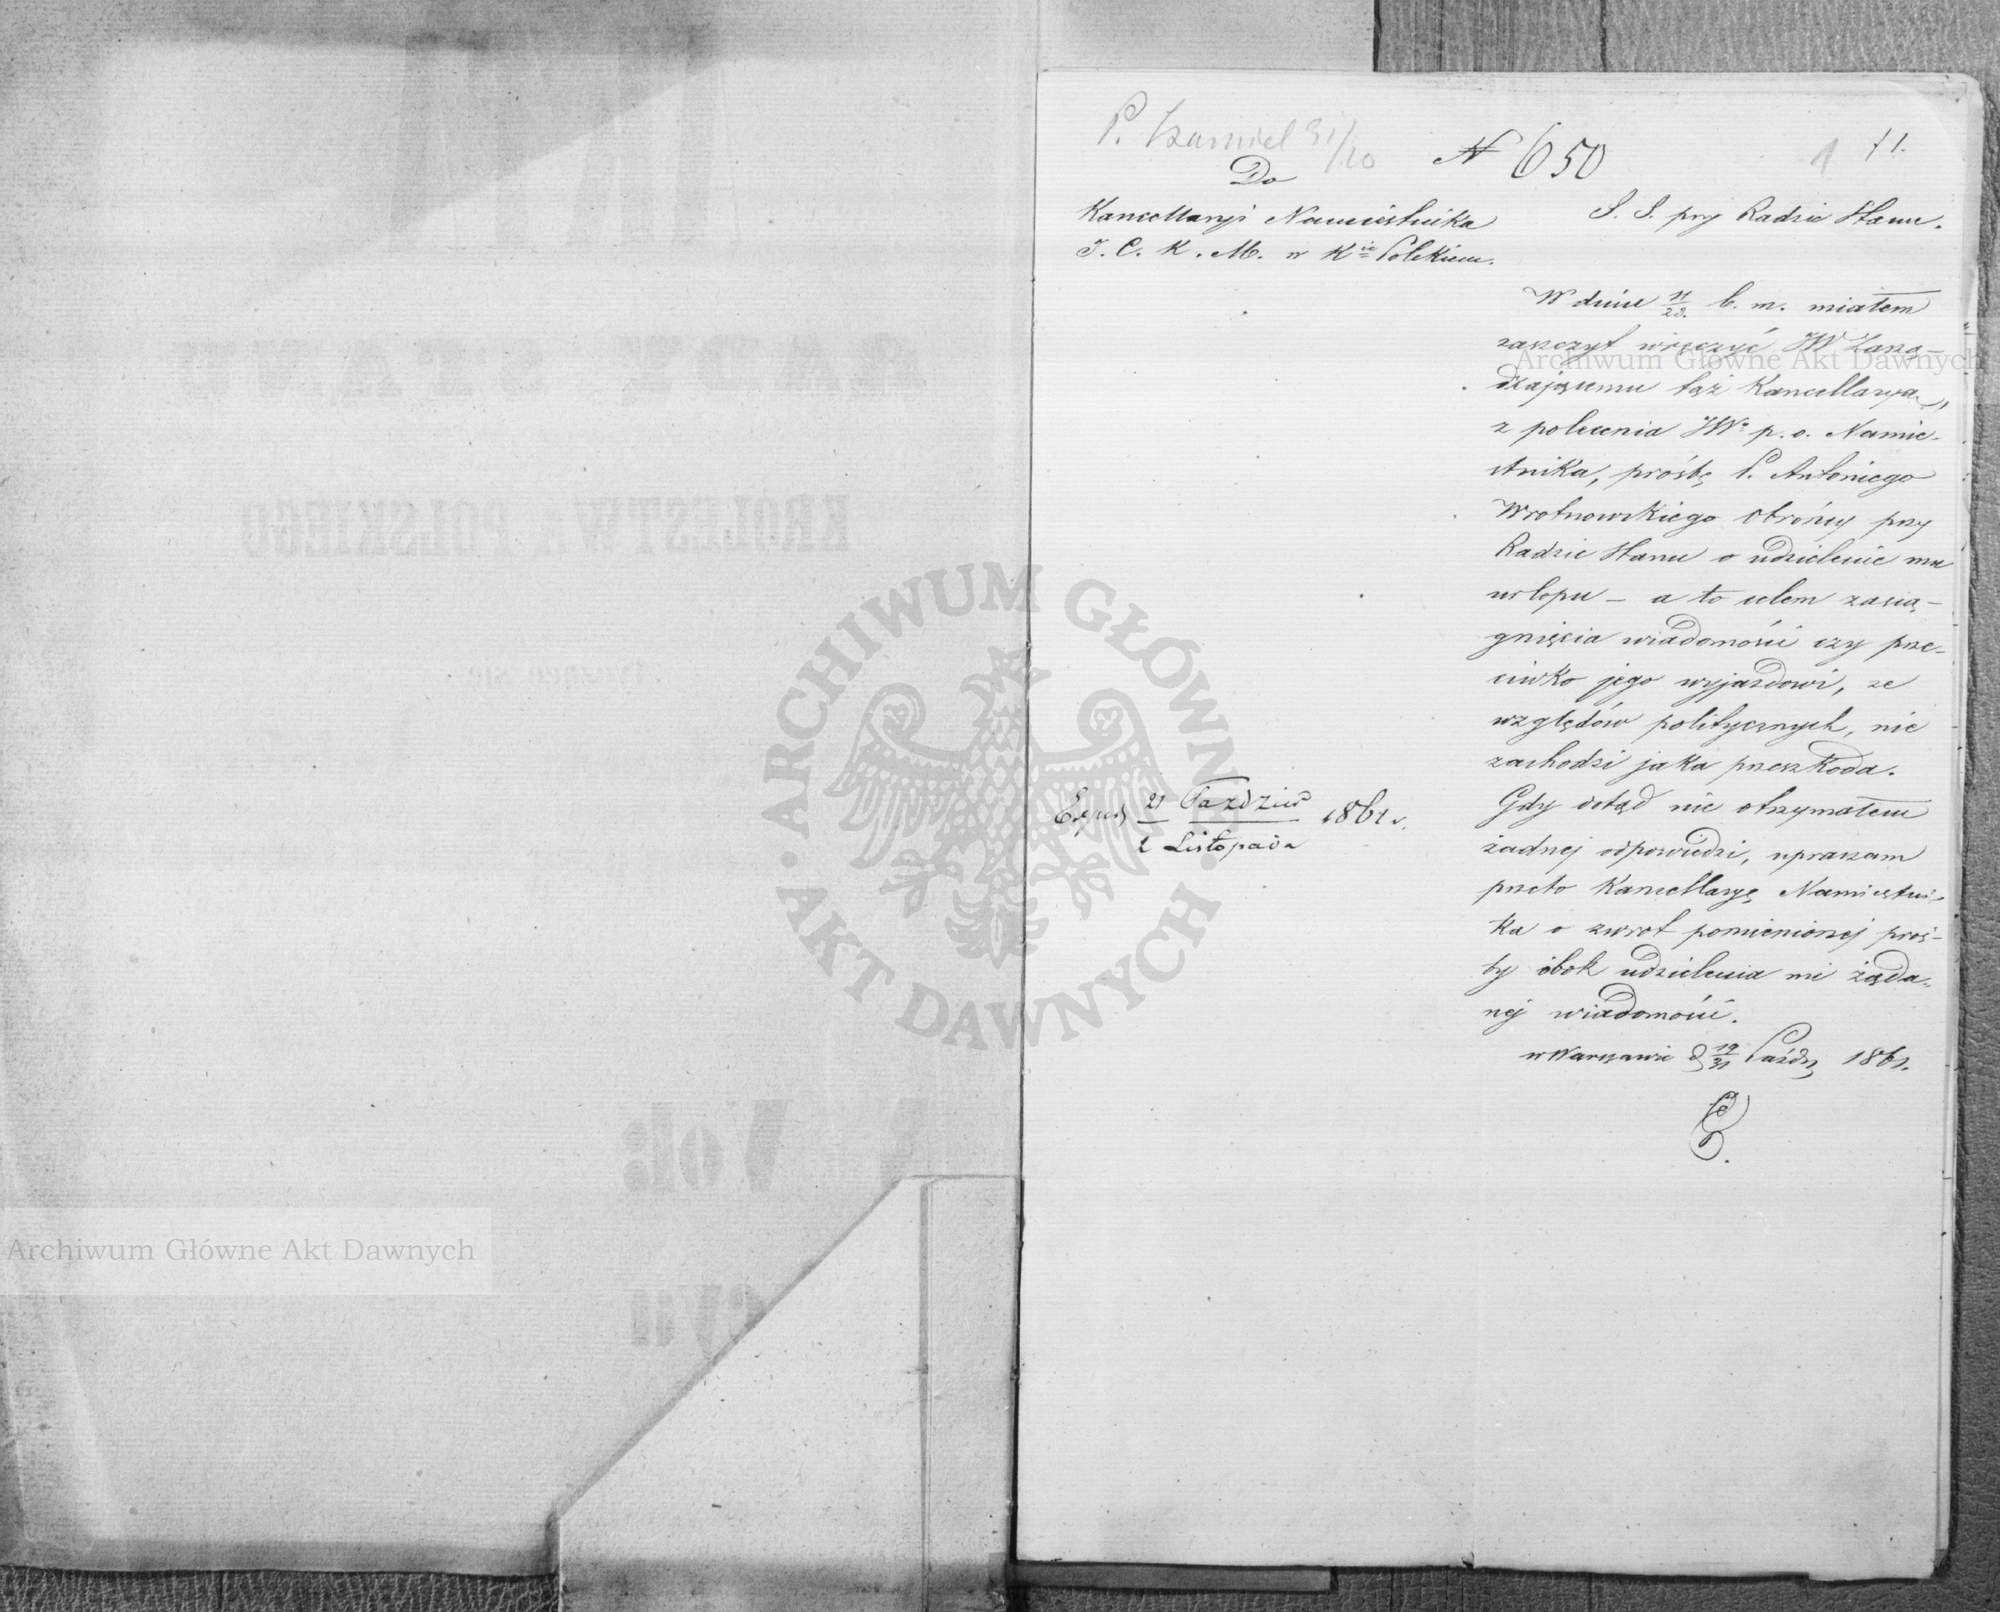 № 650
1
11.
Do
Kancellaryi Namiestnika
J. C. K. M. w Kie Polskiem.
S. S. przy Radzie Stanu.
W dniu 11/23. b. m. miałem
zaszczyt wręczyć JW Zarzą-
dzającemu tąż Kancellaryą,
z polecenia JWo p. o. Namie-
stnika, prośbę P. Antoniego
Wrotnowskiego Obrońcy przy
Radzie Stanu o udzielenie mu
urlopu – a to celem zasią-
gnięcia wiadomości czy prze-
ciwko jego wyjazdowi, ze
względów politycznych, nie
zachodzi jaka przeszkoda.
Gdy dotąd nie otrzymałem
żadnej odpowiedzi, upraszam
przeto Kancellaryę Namiestni-
ka o zwrot pomienionej proś-
by obok udzielenia mi żąda-
nej wiadomości.
w Warszawie d 19/31 Paźdz 1861.
Exped 21 Paździer / 2 Listopada 1861 r.
ARCHIWUM GŁÓWNE
AKT DAWNYCH
Archiwum Główne Akt Dawnych
Archiwum Główne Akt Dawnych
RADY STANU
KRÓLESTWA POLSKIEGO
Vol: